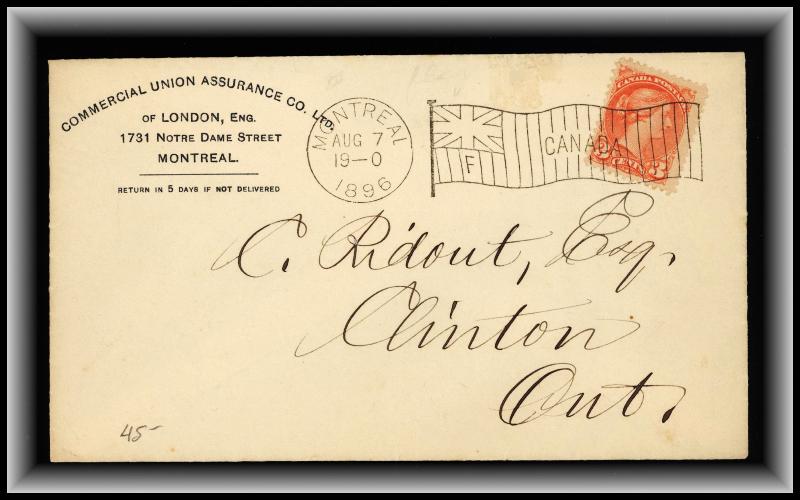 COMMERCIAL UNION ASSURANCE CO. LTD.
OF LONDON, ENG.
1731 NOTRE DAME STREET
MONTREAL.
RETURN IN 5 DAYS IF NOT DELIVERED
MONTREAL
AUG 7
19-0
1896
F
CANADA
CANADA POSTAGE
3 CENTS 3
C. Ridout, Esq.
Clinton
Ont.
45-